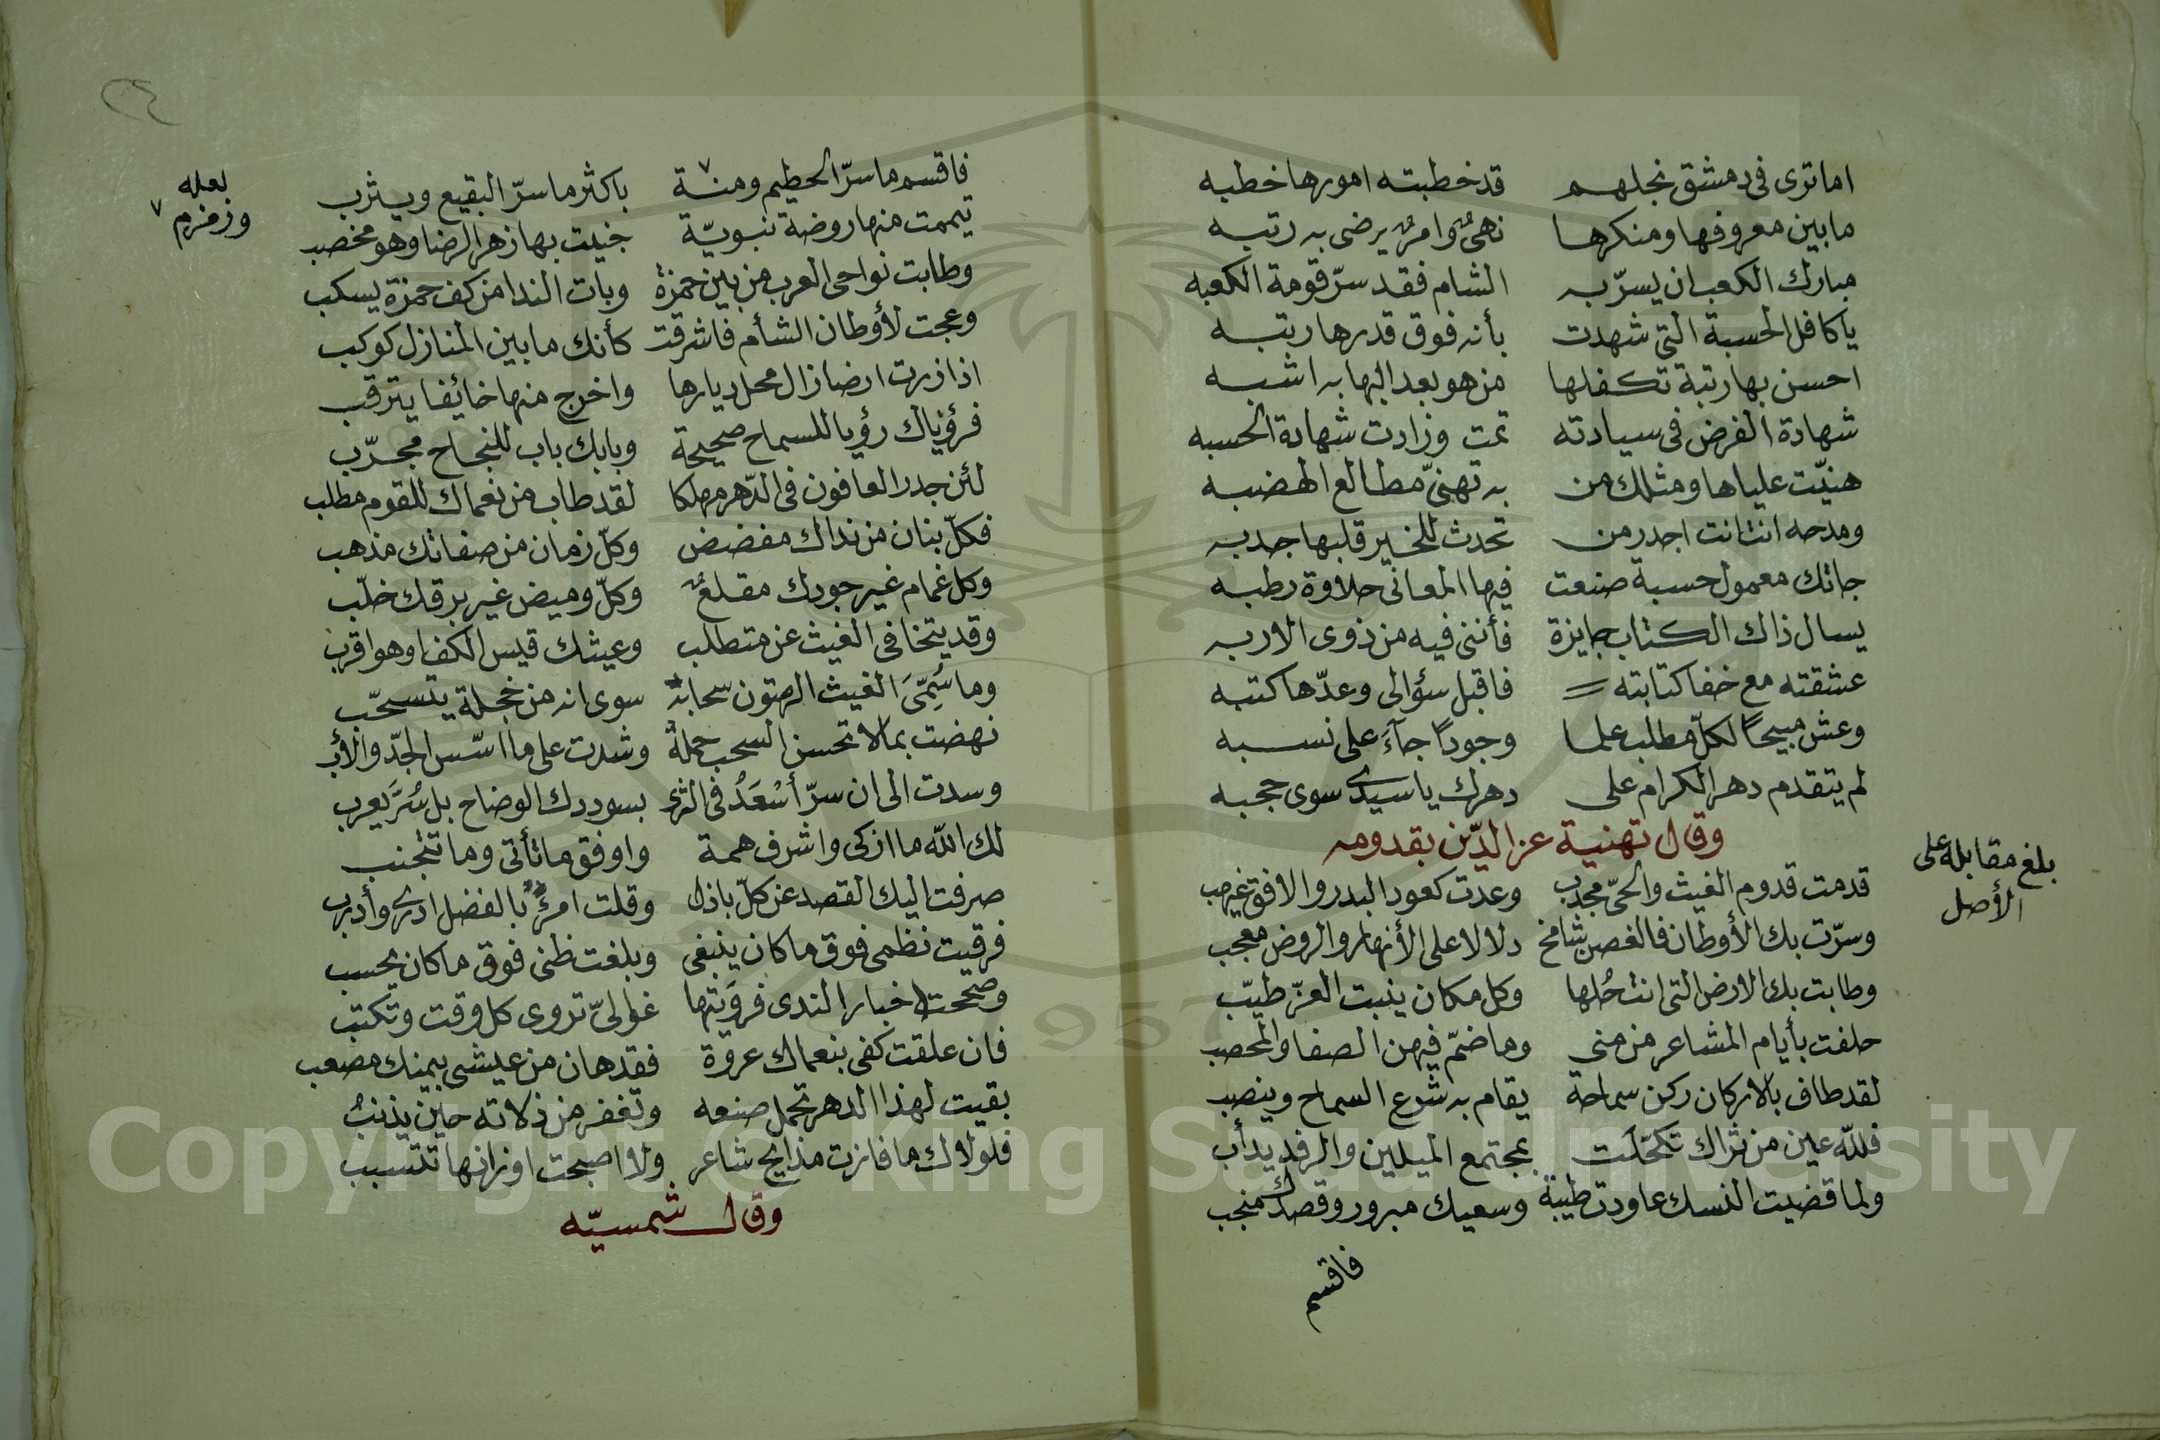 اما ترى فى دمشق نجلهم قد خطبته امورها خطبه
ما بين معروفها ومنكرها نهىٌ وامرٌ يرضى به رتبه
مبارك الكعب ان يسرّ به الشام فقد سرّ قومة الكعبه
يا كافل الحسبة التى شهدت بأنه فوق قدرها رتبه
احسن بها رتبة تكفلها من هو بعد البها به اشبه
شهادة الفرض فى سيادته تمت وزادت شهادة الحسبه
هنيّت علياها ومثلك من به تهنّى مطالع الهضبه
ومدحه انت انت اجدر من تحدث للخير قلبها جدبه
جاتك معمول حسبة صنعت فيها المعانى حلاوة رطبه
يسال ذاك الكتاب جايزة فأننى فيه من ذوى الاربه
عشقته مع خفا كتابته فاقبل سؤالى وعدّها كتبه
وعش مبيحًا لكلّ مطلب علما وجودًا جآءَ على نسبه
لم يتقدم دهر الكرام على دهرك يا سيدى سوى حجبه
وقال تهنية عز الدّين بقدومه
بلغ مقابلة على
الأصل
قدمت قدوم الغيث والحىّ مجدب وعدت كعود البدر والافق غيهب
وسرّت بك الأوطان فالغصن شامخ دلالا على الأنهار والروض معجب
وطابت بك الارض التى انت حُلها وكل مكان ينبت العزّ طيّب
حلفت بأيام المشاعر من منى وما ضمّ فيهن الصفا والمحصب
لقد طاف بالاركان ركن سماحة يقام به شرع السماح وينصب
فللّه عين من ثراك تكحّلت بمجتمع الميلين والرفد يدأب
ولما قضيت النسك عاودت طيبة وسعيك مبرور وقصدك منجب
فاقسم
٢٤
فاقسم ما سرّ الحطيم ومنة باكثر ما سرّ البقيع ويثرب
لعله
وزمزم
تيممت منها روضة نبويّة جنيت بها زهر الرضا وهو مخصب
وطابت نواحى العرب من بين حمزة وبات الندا من كف حمزة يسكب
وعجت لأوطان الشأم فاشرقت كأنك ما بين المنازل كوكب
اذا زرت ارضا زال محل ديارها واخرج منها خائفا يترقب
فرؤياك رؤيا للسماح صحيحة وبابك باب للنجاح مجرّب
لئن جدر العافون فى الدّهر مهلكا لقد طاب من نعماك للقوم مطلب
فكلّ بنان من نداك مفضض وكلّ زمان من صفاتك مذهب
وكل غمام غير جودك مقلعٌ وكلّ وميض غير برقك خلّب
وقد يتخافى الغيث عن متطلب وغيثك قيس الكف او هو اقرب
وما سُمّىَ الغيث الهتون سحابة سوى انه من خجلة يتسحّب
نهضت بما لا تحسن السحب حملهُ وشدت على ما اسّس الجدّ والأب
وسدت الى ان سرّ أسْعَدُ فى الثرى بسوددك الوضاح بل سُرَّ يعرب
لك اللّه ما ازكى واشرف همة واوفق ما تأتى وما تتجنب
صرفت اليك القصد عن كلّ باذل وقلت امرؤٌ بالفضل ادرى وأدرب
فرقيت نظمى فوق ما كان ينبغى وبلغت ظنى فوق ما كان يحسب
وصححت اخبار الندى فرويتها غوالىّ تروى كل وقت وتكتب
فان علقت كفى بنعماك عروة فقد هان من عيشى بيمنك مصعب
بقيت لهذا الدهر تحمل صنعه وتغفر من ذلاته حاين يذنبُ
فلولاك ما فازت مذايح شاعر ولا اصبحت اوزانها تتسبب
وقال شمسيّه